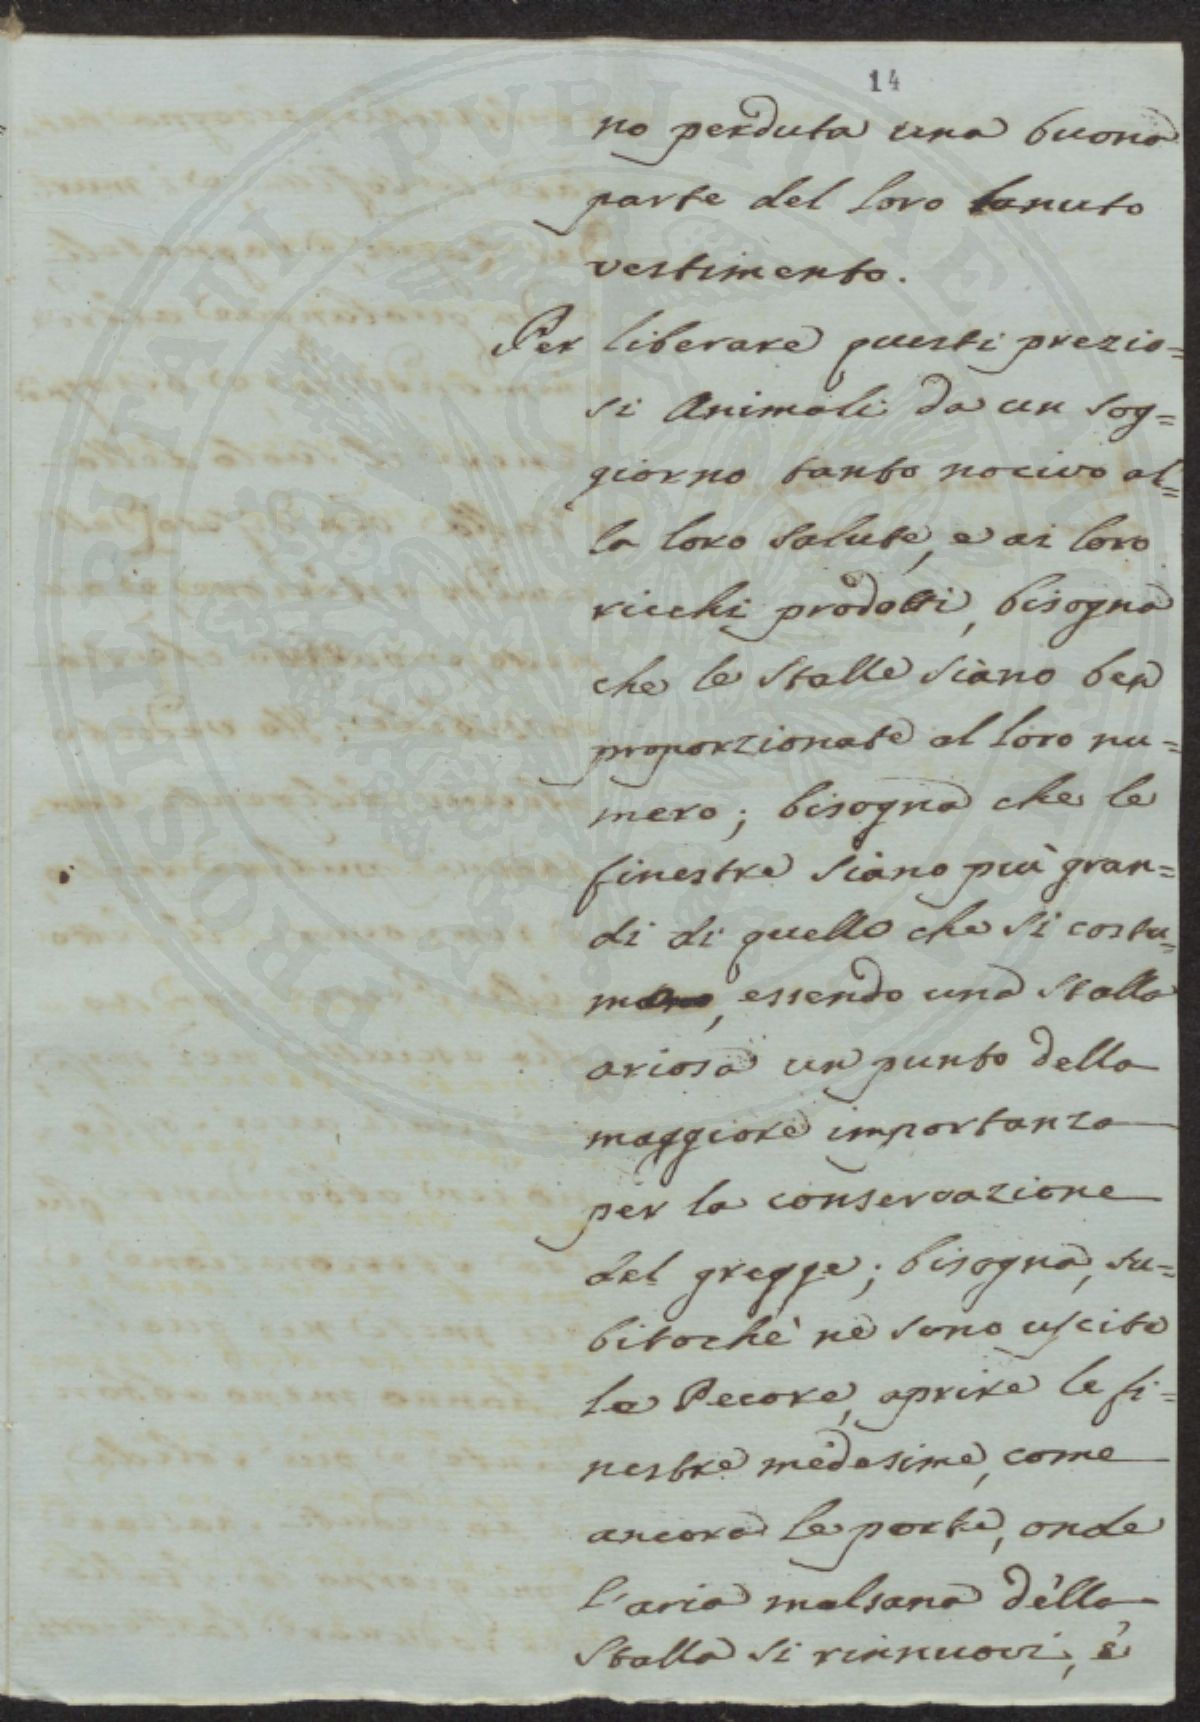 14
no perduta una buona
parte del loro lanuto
vestimento.
Per liberare questi prezio=
si Animali da un sog=
giorno tanto nocivo al=
la loro salute, e ai loro
ricchi prodotti, bisogna
che le stalle siano ben
proporzionate al loro nu=
mero; bisogna che le
finestre siano più gran=
di di quello che si costu=
mano, essendo una stalla
ariosa un punto della
maggiore importanza
per la conservazione
del gregge; bisogna, su=
bitochè ne sono uscite
le Pecore, aprire le fi=
nestre medesime, come
ancora le porte, onde
l'aria malsana della
stalla si rinnuovi, è
PROSPERITATI PUBLICAE AUGENDAE